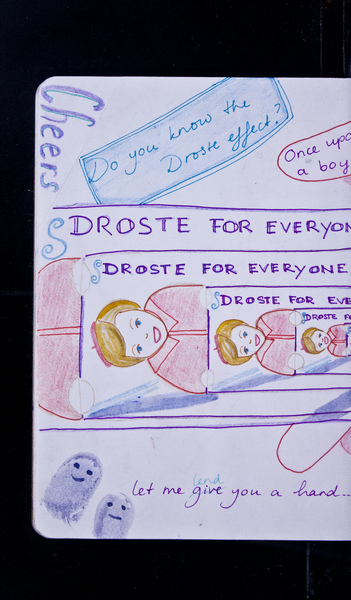 Cheers
Do you know the
Droste effect?
Once upo
a boy
DROSTE FOR EVERYON
DROSTE FOR EVERYONE
DROSTE FOR EVE
DROSTE FO
lend
let me give you a hand...